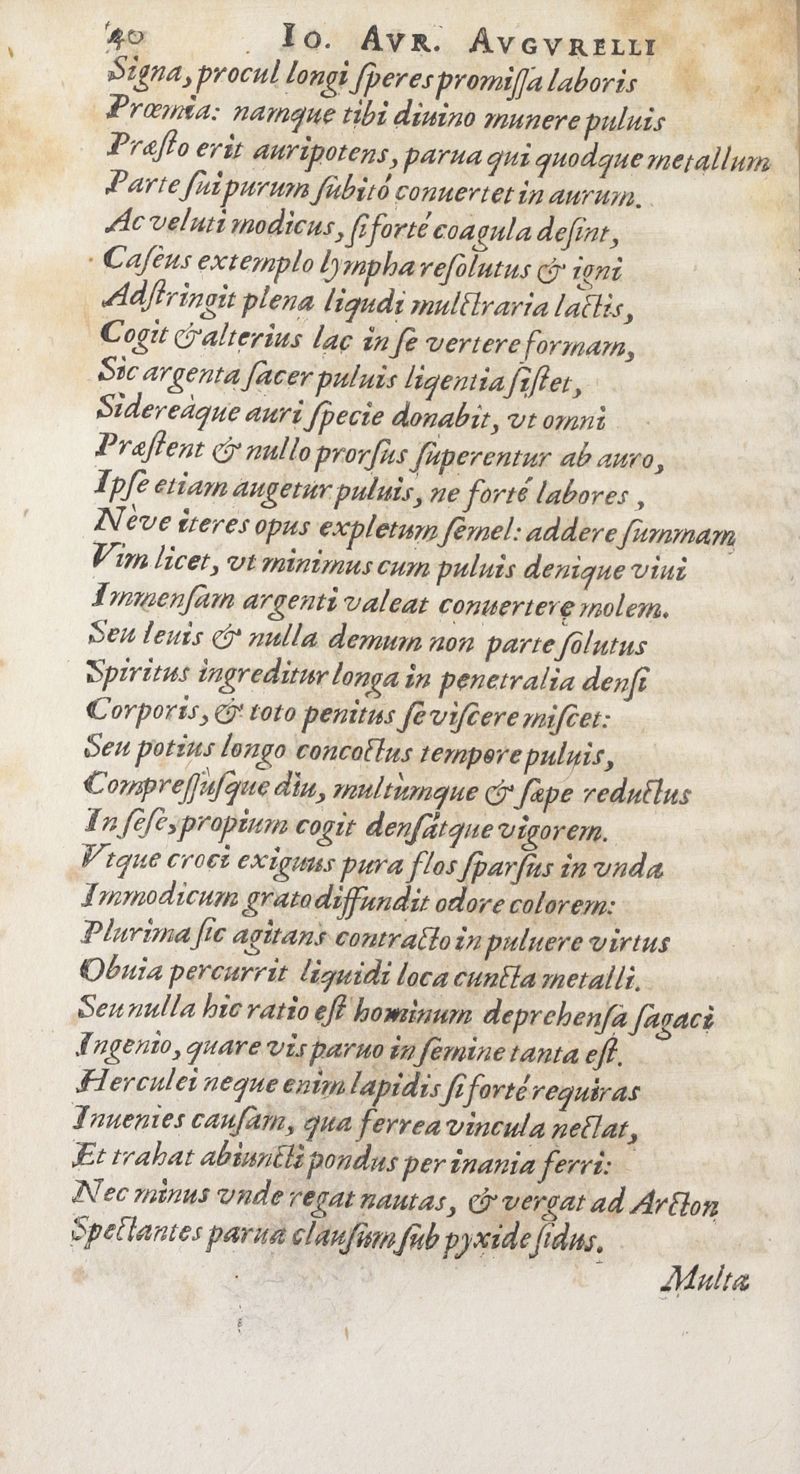 40 IO. AVR. AVGVRELLI
Signa, procul longi ſperes promiſſa laboris
Prœmia: namque tibi diuino munere puluis
Præſto erit auripotens, parua qui quodque metallum
Parte ſui purum ſubitó conuertet in aurum.
Ac veluti modicus, ſi forté coagula deſint,
Caſeus extemplo lympha reſolutus & igni
Adſtringit plena liqudi mulctraria lactis,
Cogit & alterius lac in ſe vertere formam,
Sic argenta ſacer puluis liqentia ſiſtet,
Sidereàque auri ſpecie donabit, vt omni
Præſtent & nullo prorſus ſuperentur ab auro,
Ipſe etiam augetur puluis, ne forté labores,
Nève iteres opus expletum ſemel: addere ſummam
Vim licet, vt minimus cum puluis denique viui
Immenſam argenti valeat conuertere molem.
Seu leuis & nulla demum non parte ſolutus
Spiritus ingreditur longa in penetralia denſi
Corporis, & toto penitus ſe viſcere miſcet:
Seu potius longo concoctus tempore puluis,
Compreſſùſque diu, multùmque & ſæpe reductus
In ſeſe, propium cogit denſátque vigorem.
Vtque croci exiguus pura flos ſparſus in vnda
Immodicum grato diffundit odore colorem:
Plurima ſic agitans contracto in puluere virtus
Obuia percurrit liquidi loca cuncta metalli.
Seu nulla hic ratio eſt hominum deprehenſa ſagaci
Ingenio, quare vis paruo in ſemine tanta eſt.
Herculei neque enim lapidis ſi forté requiras
Inuenies cauſam, qua ferrea vincula nectat,
Et trahat abiuncti pondus per inania ferri:
Nec minus vnde regat nautas, & vergat ad Arcton
Spectantes parua clauſum ſub pyxide ſidus.
Multa